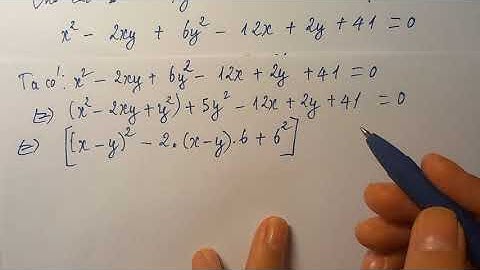 x² - 2xy + 6y² - 12x + 2y + 41 = 0
Ta có: x² - 2xy + 6y² - 12x + 2y + 41 = 0
(=) (x² - 2xy + y²) + 5y² - 12x + 2y + 41 = 0
(=) [(x - y)² - 2.(x - y).6 + 6²]